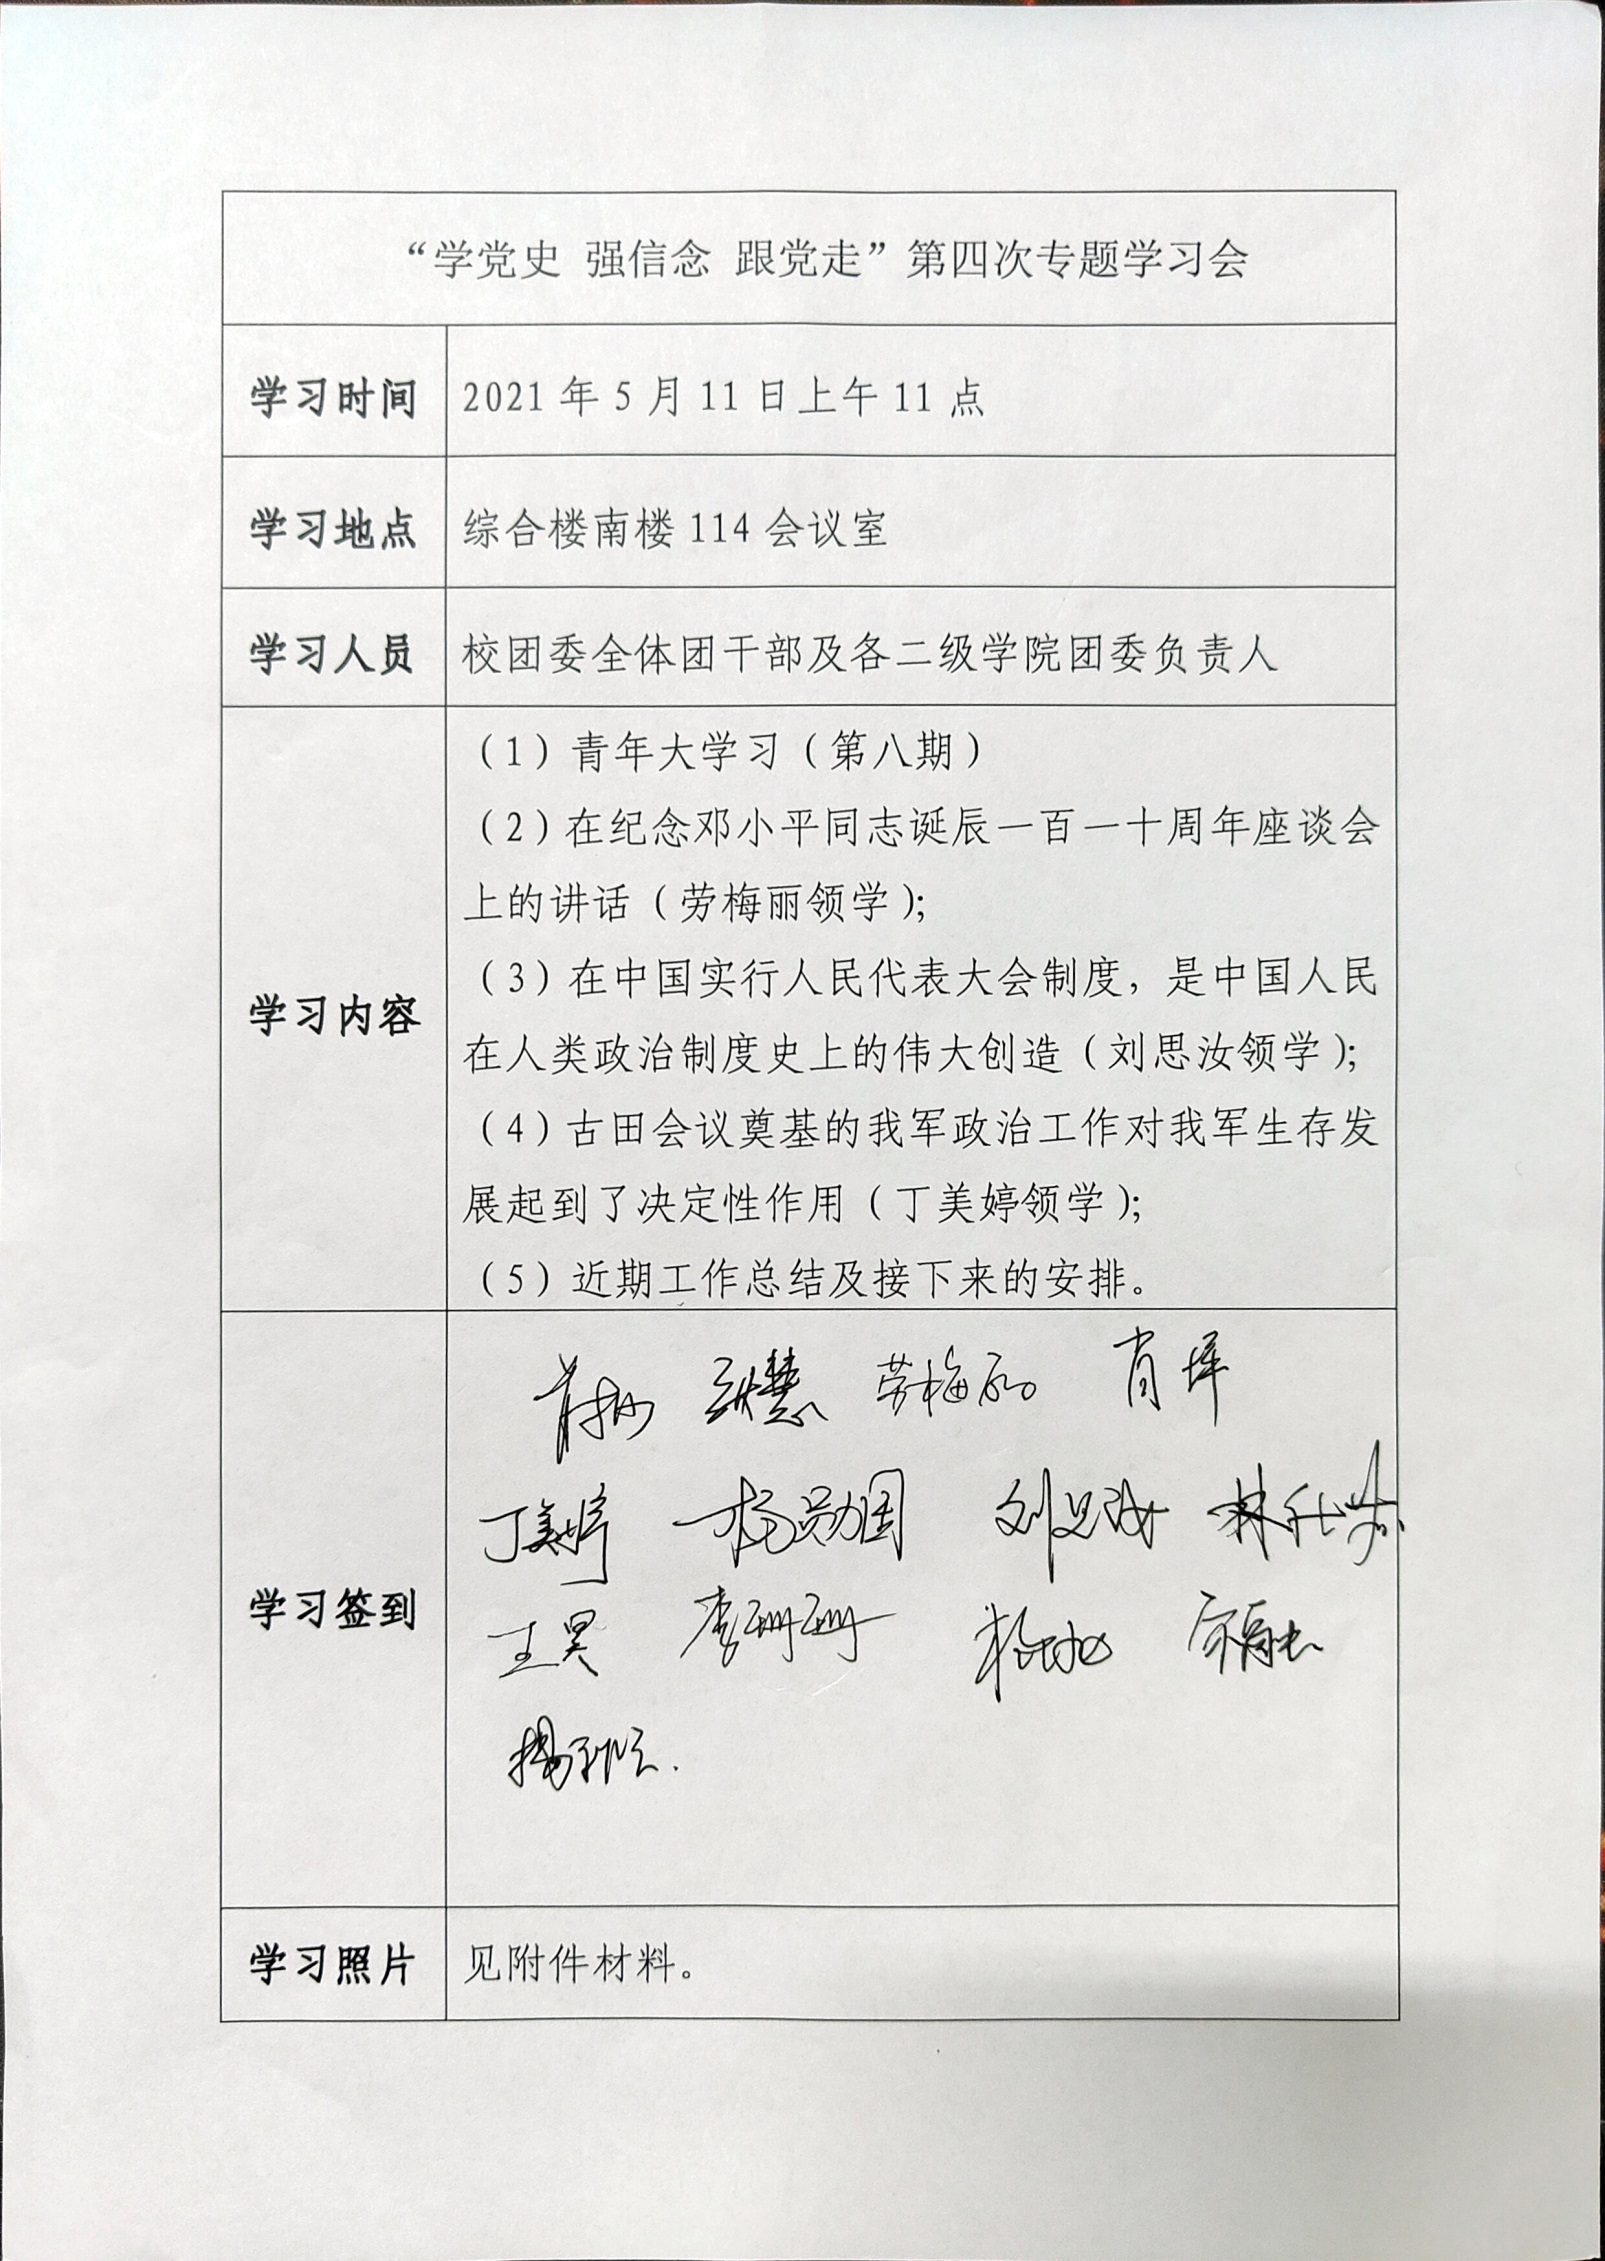 “学党史 强信念 跟党走”第四次专题学习会
学习时间 2021年5月11日上午11点
学习地点 综合楼南楼114会议室
学习人员 校团委全体团干部及各二级学院团委负责人
学习内容
（1）青年大学习（第八期）
（2）在纪念邓小平同志诞辰一百一十周年座谈会
上的讲话（劳梅丽领学）；
（3）在中国实行人民代表大会制度，是中国人民
在人类政治制度史上的伟大创造（刘思汝领学）；
（4）古田会议奠基的我军政治工作对我军生存发
展起到了决定性作用（丁美婷领学）；
（5）近期工作总结及接下来的安排。
学习签到
劳梅丽 肖萍
丁美婷 杨勋国 刘思汝
王昊 李珊珊
学习照片 见附件材料。